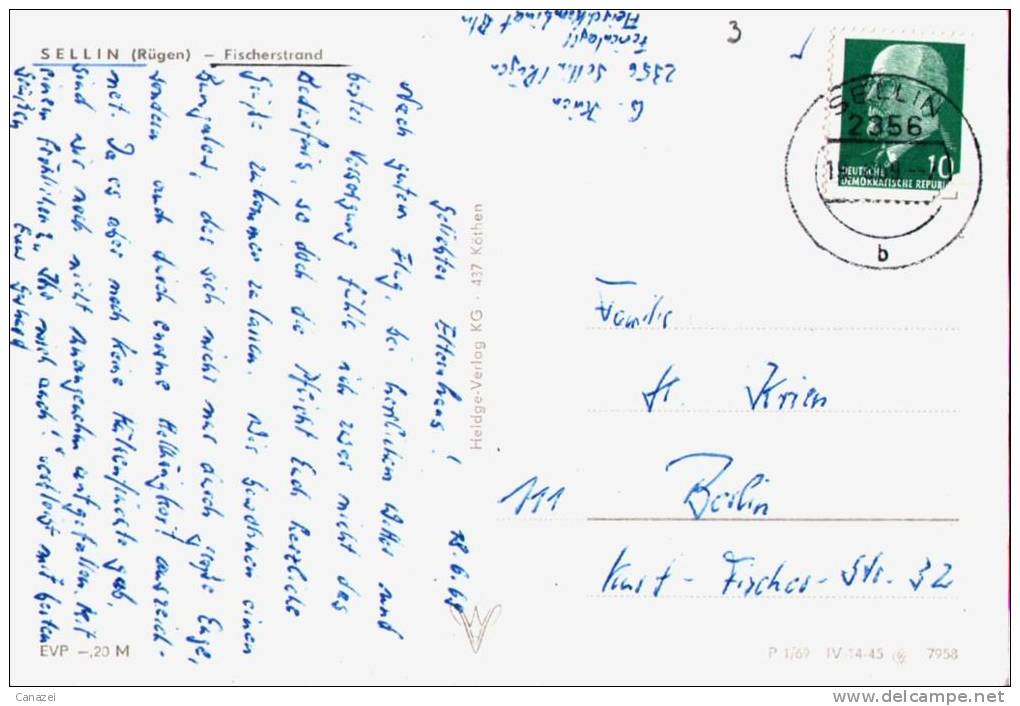 SELLIN (Rügen) – Fischerstrand
18.6.69
Geliebtes Elternhaus!
Nach gutem Flug, bei herrlichem Wetter und
bester Versorgung fühle ich zwar nicht das
Bedürfnis, so doch die Pflicht Euch herzliche
Grüße zukommen zu lassen. Wir bewohnen einen
Bungalow, der sich nicht nur durch große Enge,
sondern auch durch enorme Hellhörigkeit auszeich-
net. Da es aber noch keine gab,
sind wir noch nicht unangenehm aufgefallen. Mit
einem Fröhlichen Ihr mich auch! verbleibt mit besten
Grüßen
Euer Gerhard
Heldge-Verlag KG · 437 Köthen
EVP –,20 M
G. Krien
2356 Sellin/Rügen
Ferienlager
Fleischkombinat Bln
3
SELLIN
2356
b
10
DEUTSCHE
DEMOKRATISCHE REPUBLIK
Familie
H. Krien
111 Berlin
Kurt-Fischer-Str. 32
P 1/69 IV-14-45 7958
Canazei
www.delcampe.net